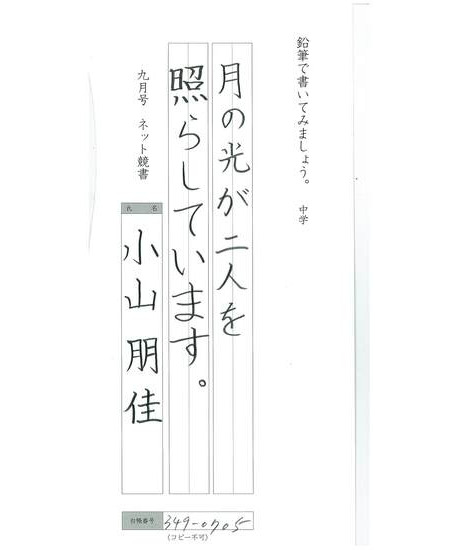 鉛筆で書いてみましょう。 中学
月の光が二人を
照らしています。
九月号 ネット競書
氏名
小山朋佳
台帳番号 349-0705
(コピー不可)